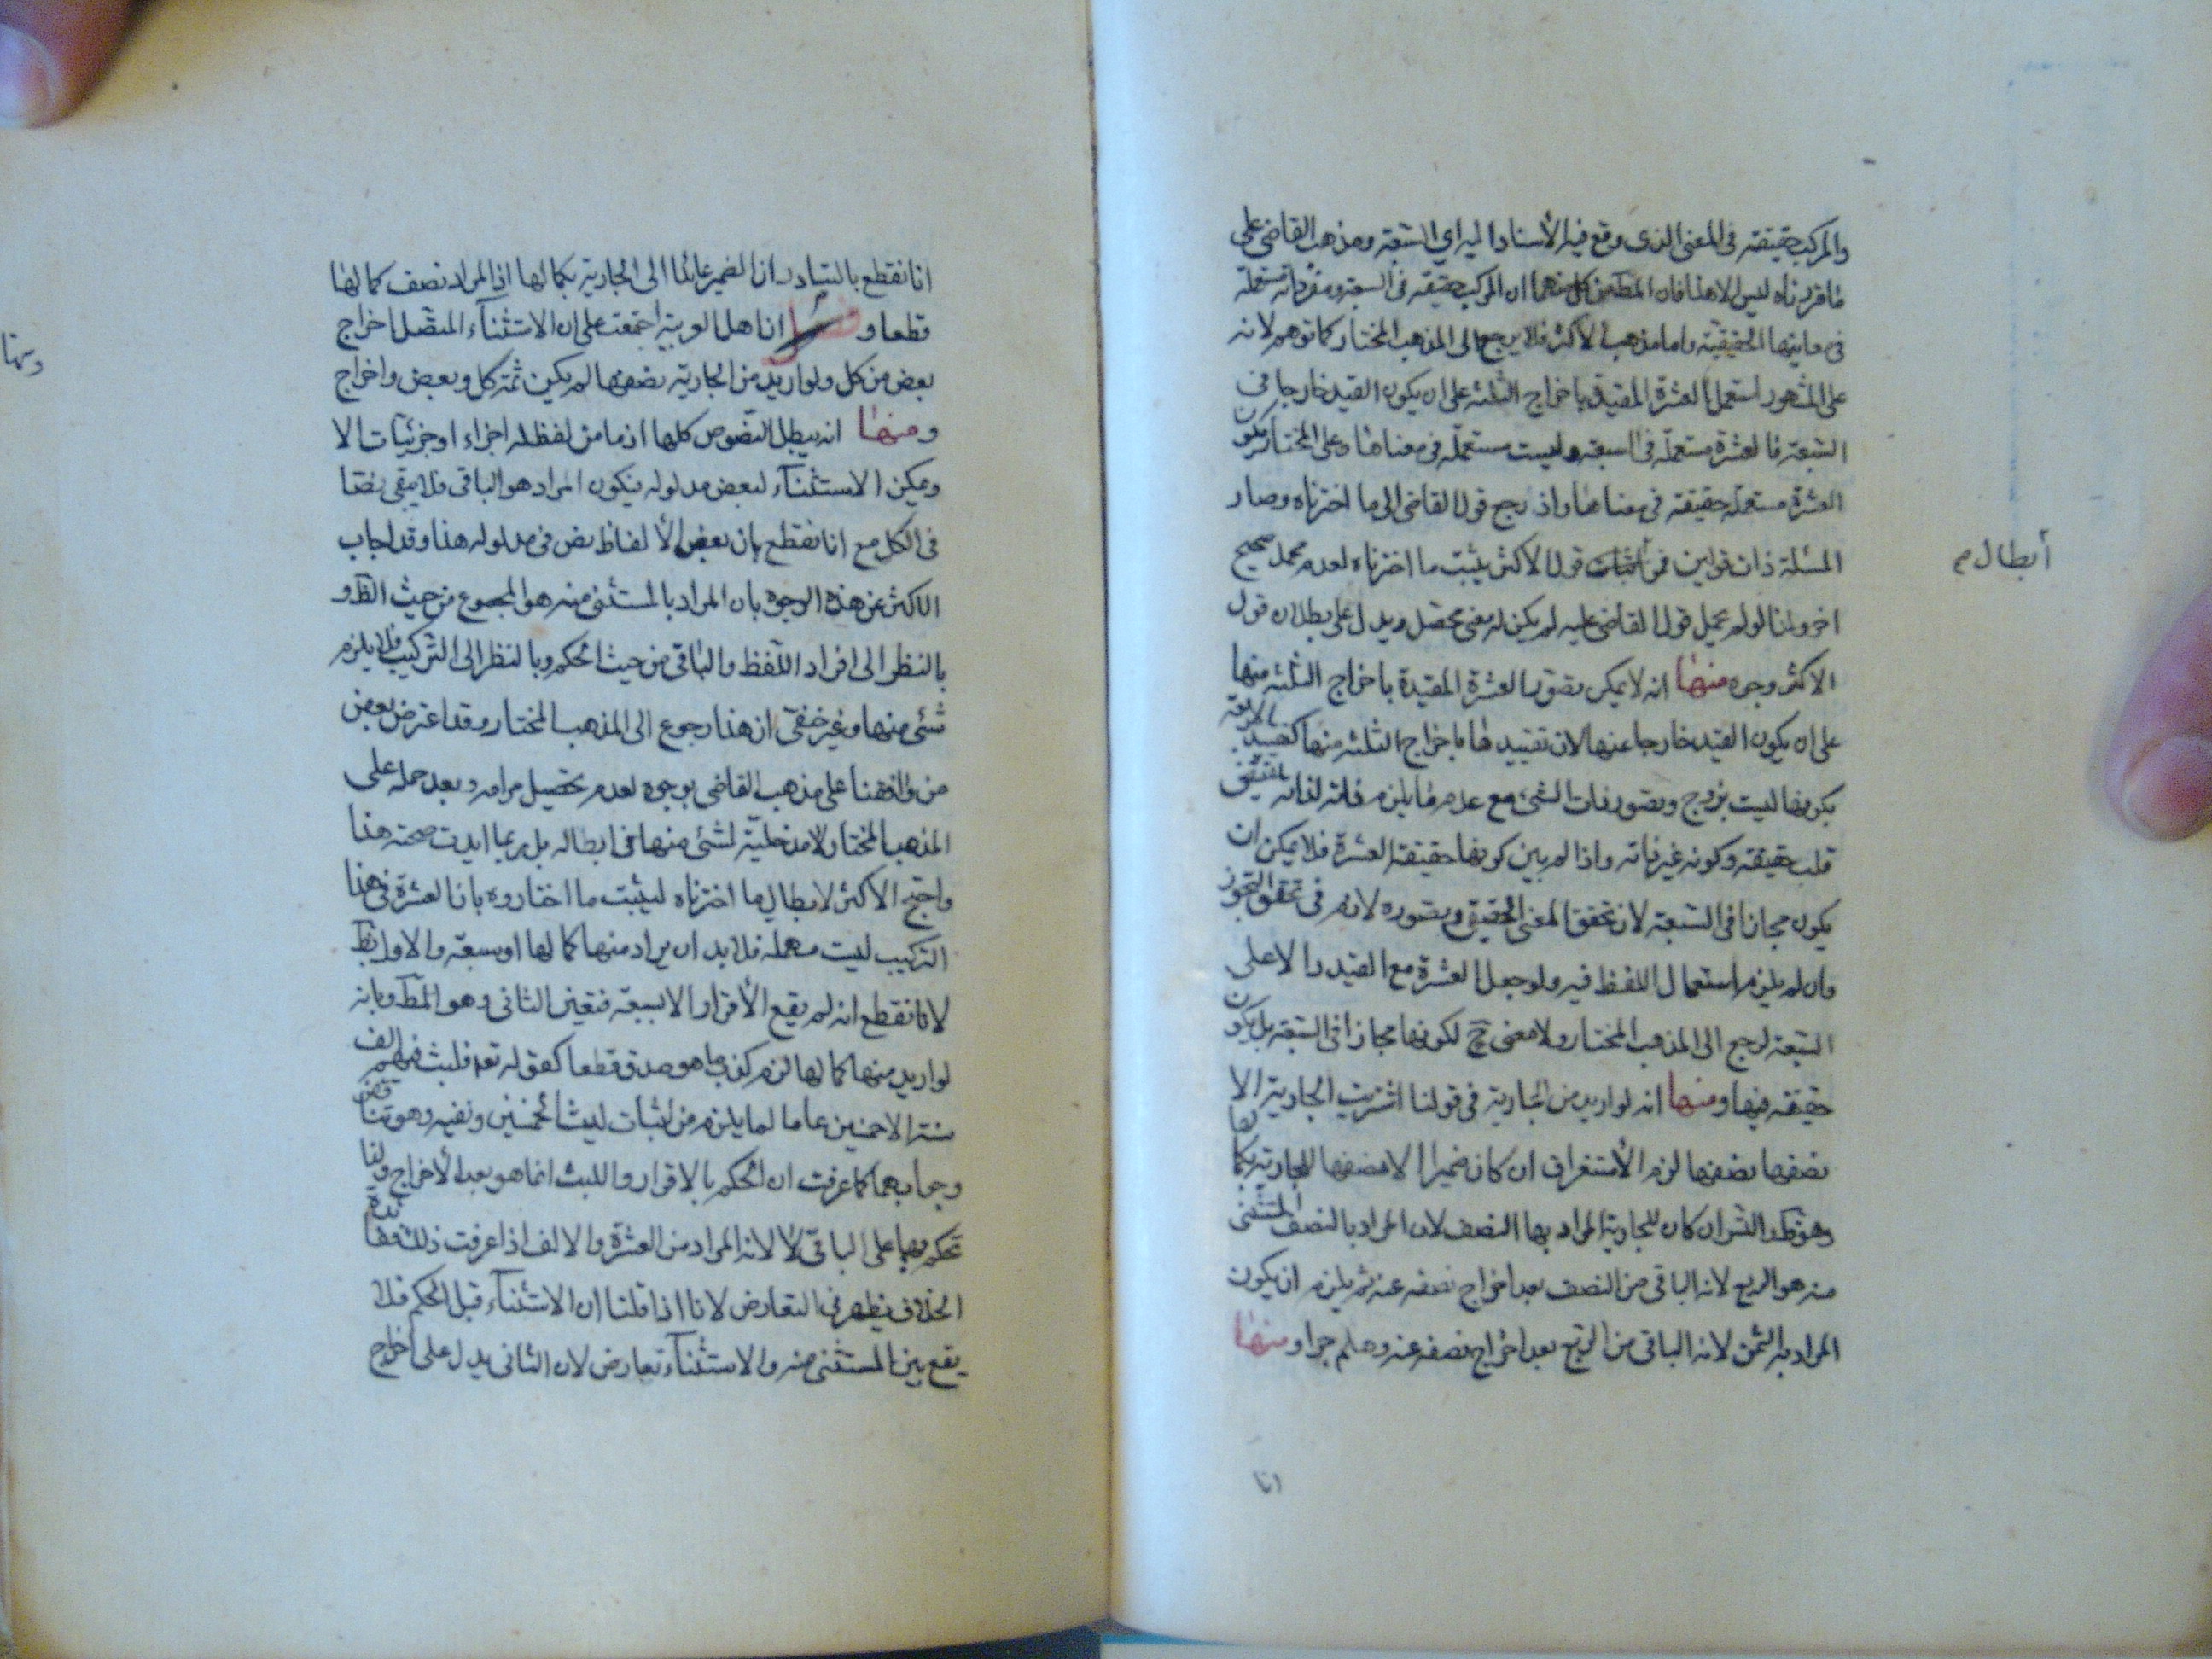 والمركب حقيقة فى المعنى الذى وقع فيه الأسناد اليه اي السبعة ومذهب القاضى على
ما قررناه ليس الا هذا فان المط من كل منهما ان المركب حقيقة فى السبعة ومفرداته مستعملة
فى معاينها الحقيقية واما مذهب الأكثر فلا يرجع الى المذهب المختار كما توهم لانه
على المشهور استعمل العشرة المقيدة باخراج الثلثة على ان يكون القيد خارجا فى
السبعة فالعشرة مستعملة فى السبعة وليست مستعملة فى معناها وعلى المختار يكون
العشرة مستعملة حقيقة فى معناها واذ رجع قول القاضى الى ما اخترناه وصار
المسئلة ذات قولين فمن اثبات قول الاكثر يثبت ما اخترناه لعدم محمل صحيح
ابطال م
اخر ولنا لو لم يحمل قول القاضى عليه لم يكن له معنى محصل ويدل على بطلان قول
الاكثر وجوه منها انه لا يمكن تصور العشرة المقيدة باخراج الثلثة منها
على ان يكون القيد خارجا عنها لان تقييدها باخراج الثلثة منها كتقييد الاربعة
بكونها ليست بزوج وتصور ذات الشئ مع عدم ما يلزم ذاته لذاته يقتضى
قلب حقيقته وكونه غير ذاته واذا لم يبين كونها حقيقة العشرة فلا يمكن ان
يكون مجازا فى السبعة لان تحقق المعنى الحقيقى وتصوره لازم فى تحقق التجوز
وان لم يلزم استعمال اللفظ فيه ولو جعل العشرة مع القيد دالا على
السبعة لرجع الى المذهب المختار ولا معنى ح لكونها مجازا فى السبعة بل يكون
حقيقة فيها ومنها انه لو اريد من الجارية فى قولنا اشتريت الجارية الا
نصفها نصفها لزم الأستغراق ان كان ضمير الا نصفها للجارية بكمالها
وهو والتس ان كان للجارية المراد بها النصف لان المراد بالنصف المستثنى
منه هو الربع لانه الباقى من النصف بعد اخراج نصفه عنه ثم يلزم ان يكون
المراد به الثمن لانه الباقى من الربع بعد اخراج نصفه عنه وهلم جرا ومنها
انا
انا نقطع بالتبادر ان الضمير عائدا الى الجارية بكمالها اذ المراد نصف كمالها
قطعا و انا اهل العربية اجتمعت على ان الاستثنآء المتصل اخراج
بعض من كل ولو اريد من الجارية نصفها لم يكن ثمة كل وبعض واخراج
ومنها انه يبطل النصوص كلها اذ ما من لفظ له اجزاء او جزئيات الا
ويمكن الاستثنآء لبعض مدلوله فيكون المراد هو الباقى فلا يبقى نصا
فى الكل مع انا نقطع بان بعض الألفاظ نص فى مدلوله هذا وقد اجاب
الاكثر عن هذه الوجوه بان المراد بالمستثنى منه هو المجموع من حيث الظ و
بالنظر الى افراد اللفظ والباقى من حيث الحكم وبالنظر الى التركيب فلا يلزم
شئ منها وغير خفى ان هذا رجوع الى المذهب المختار وقد اعترض بعض
من وافقنا على مذهب القاضى بوجوه لعدم تحصيل مرامه وبعد حمله على
المذهب المختار لا مدخلية لشئ منها فى ابطاله بل ربما ايدت صحته هذا
واحتج الاكثر لابطال ما اخترناه ليثبت ما اختاروه بان العشرة فى هذا
التركيب ليست مهملة فلا بد ان يراد منها كمالها او سبعة والاول بط
لانا نقطع انه لم يقع الأقرار الا بسبعة فتعين الثانى وهو المط وبانه
لو اريد منها كمالها لزم كذب ما هو صدق قطعا كقوله تعه فلبث فيهم الف
سنة الا خمسين عاما لما يلزم من اثبات لبث الخمسين ونفيه وهو تناقض
وجوابهما كما عرفت ان الحكم بالاقرار واللبث انما هو بعد الأخراج ولذا
تحكم بهما على الباقى لا لانه المراد من العشرة والالف اذا عرفت ذلك ففائدة
الخلاف يظهر فى التعارض لانا اذا قلنا ان الاستثنآء قبل الحكم فلا
يقع بين المستثنى منه والاستثنآء تعارض لان الثانى يدل على اخراج